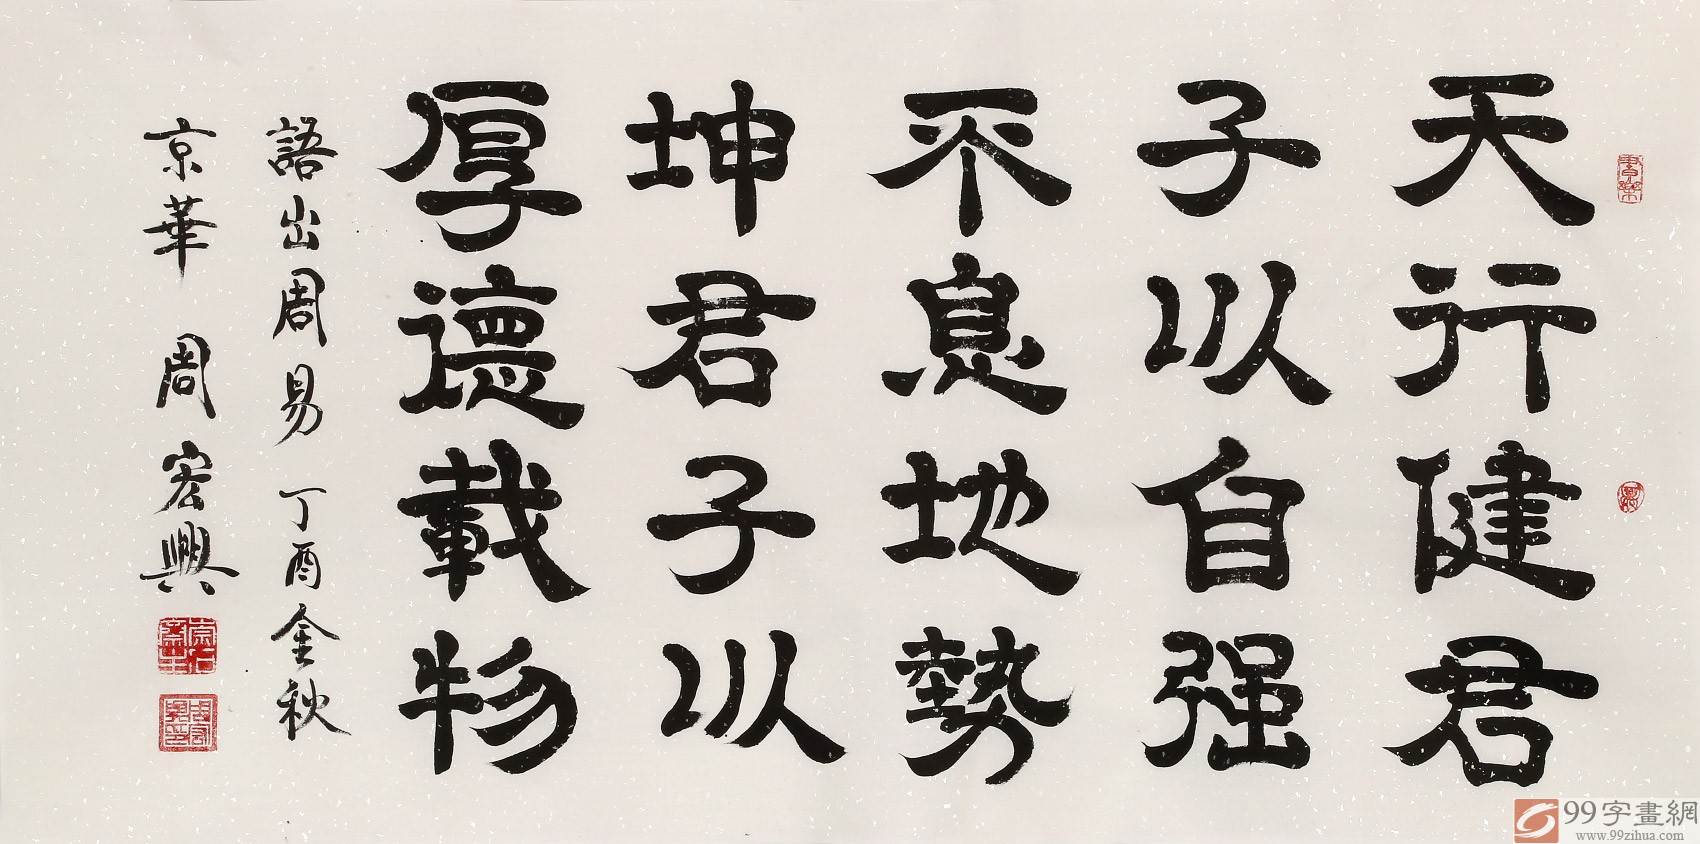 天行健君
子以自强
不息地勢
坤君子以
厚德載物
語出周易 丁酉金秋
京華 周宏興
99字畫網
www.99zihua.com